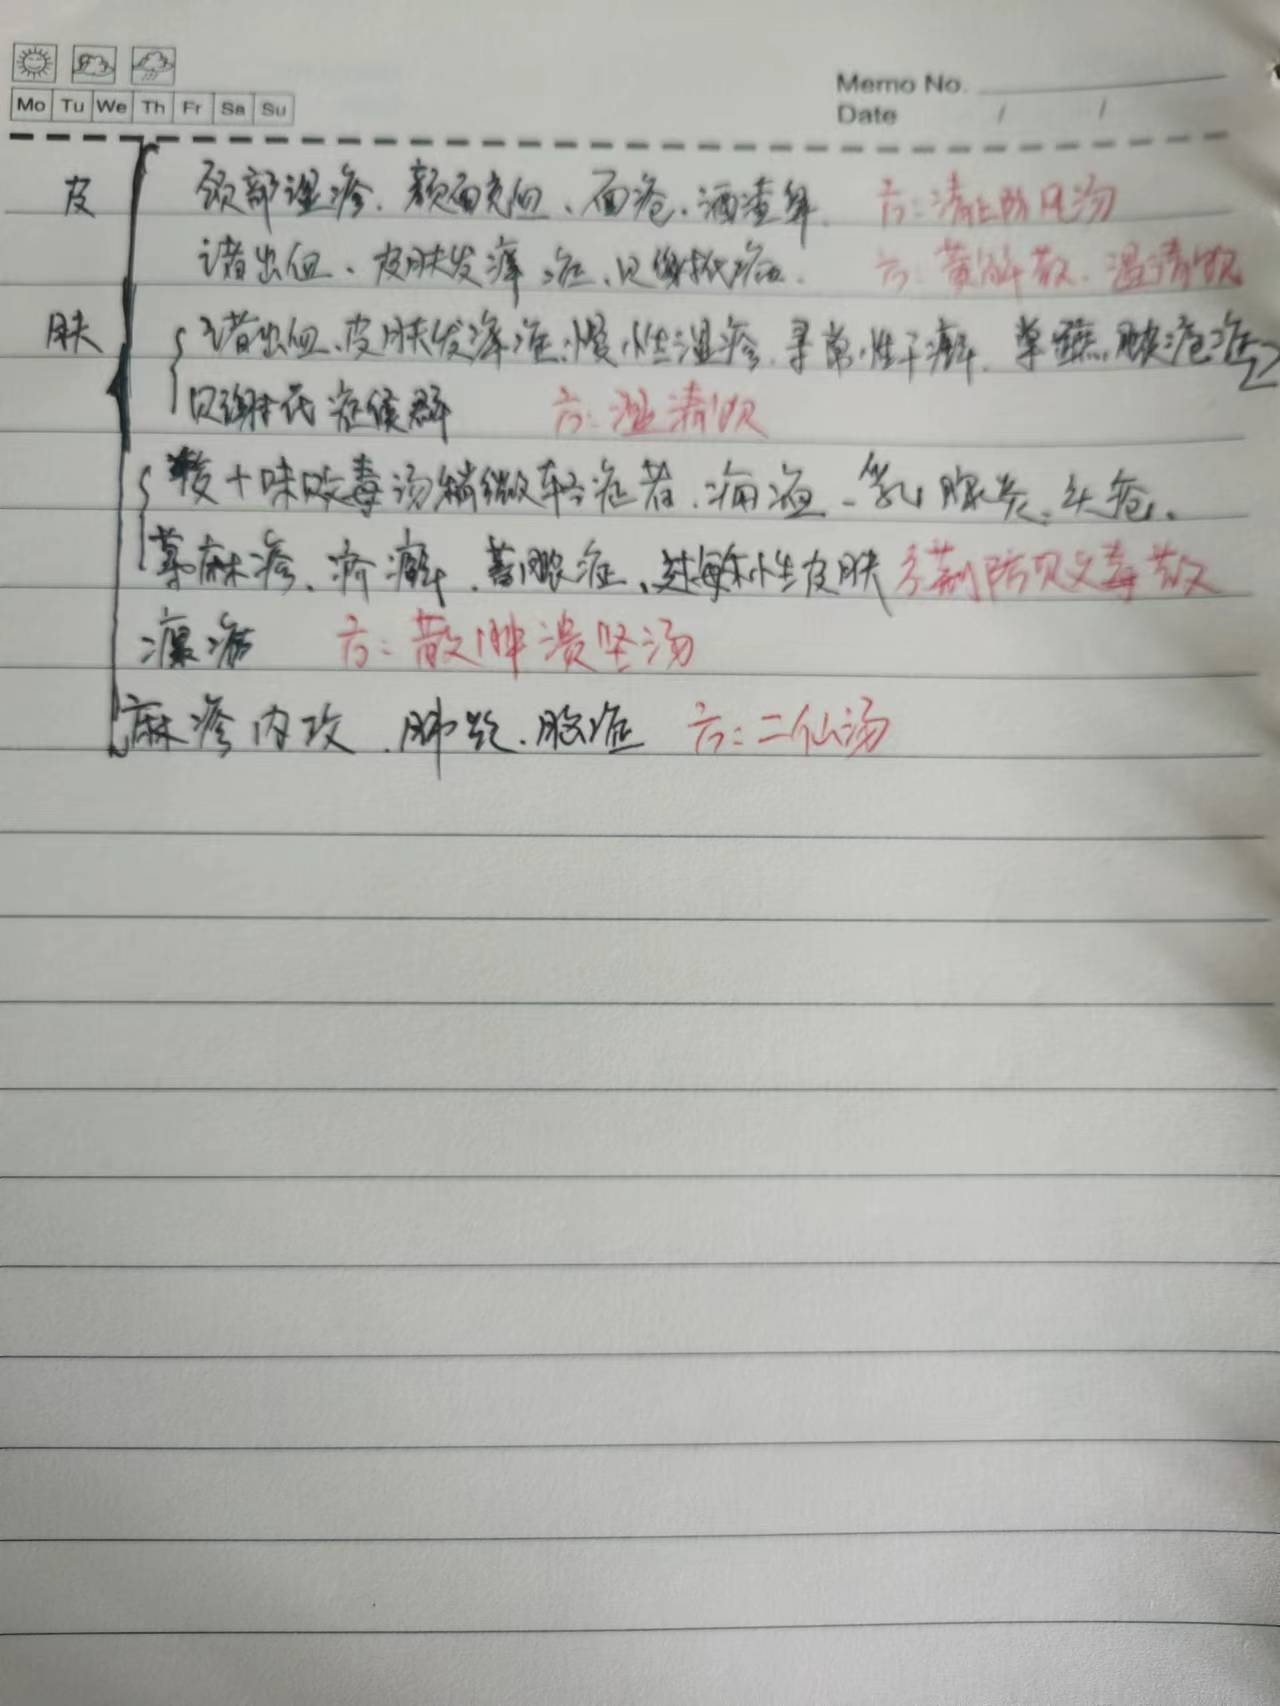 Mo Tu We Th Fr Sa Su
Memo No.
Date / /
皮肤
颈部湿疹、颜面充血、面疮、酒渣鼻 方:清上防风汤
诸出血、皮肤发痒症、贝 方:黄解散、温清饮
诸出血、皮肤发痒症、慢性湿疹、寻常性干癣、荨麻、脓疱症
贝谢氏症候群 方:温清饮
较十味败毒汤稍微轻症者、痈疽、乳腺炎、头疮、
荨麻疹、疥癣、蓄脓症、过敏性皮肤 方:荆防败毒散
瘰疬 方:散肿溃坚汤
麻疹内攻、肺炎、脓症 方:二仙汤